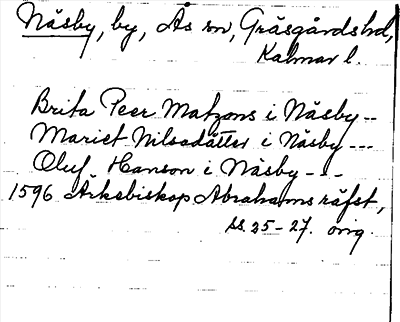 Näsby, by, Ås sn, Gräsgårds hd,
Kalmar l.
Brita Peer Matzons i Näsby--
Mariet Nilsadåtter i Näsby---
Oluf Hanson i Näsby---
1596 Ärkebiskop Abrahams räfst,
ss. 25-27. orig.